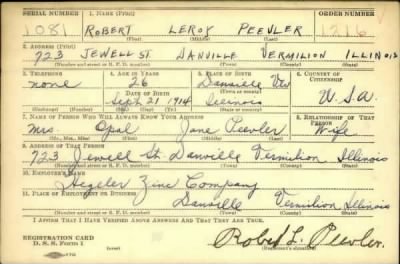 SERIAL NUMBER 1. NAME (Print) ORDER NUMBER
1081 ROBERT LEROY PEEVLER 1216 V
(First) (Middle) (Last)
2. ADDRESS (Print)
723 JEWELL ST. DANVILLE VERMILION ILLINOIS
(Number and street or R. F. D. number) (Town) (County) (State)
3. TELEPHONE 4. AGE IN YEARS 5. PLACE OF BIRTH 6. COUNTRY OF CITIZENSHIP
none 26 Danville Ver
DATE OF BIRTH (Town or county)
Sept 21 1914 Illinois U.S.A.
(Exchange) (Number) (Mo.) (Day) (Yr.) (State or country)
7. NAME OF PERSON WHO WILL ALWAYS KNOW YOUR ADDRESS 8. RELATIONSHIP OF THAT PERSON
Mrs. Opal Jane Peevler Wife
(Mr., Mrs., Miss) (First) (Middle) (Last)
9. ADDRESS OF THAT PERSON
723 Jewell St. Danville Vermilion Illinois
(Number and street or R. F. D. number) (Town) (County) (State)
10. EMPLOYER'S NAME
Hegeler Zinc Company
11. PLACE OF EMPLOYMENT OR BUSINESS
Danville Vermilion Illinois
(Number and street or R. F. D. number) (Town) (County) (State)
I AFFIRM THAT I HAVE VERIFIED ABOVE ANSWERS AND THAT THEY ARE TRUE.
REGISTRATION CARD
D. S. S. Form 1 Robert L. Peevler.
(Registrant's signature)